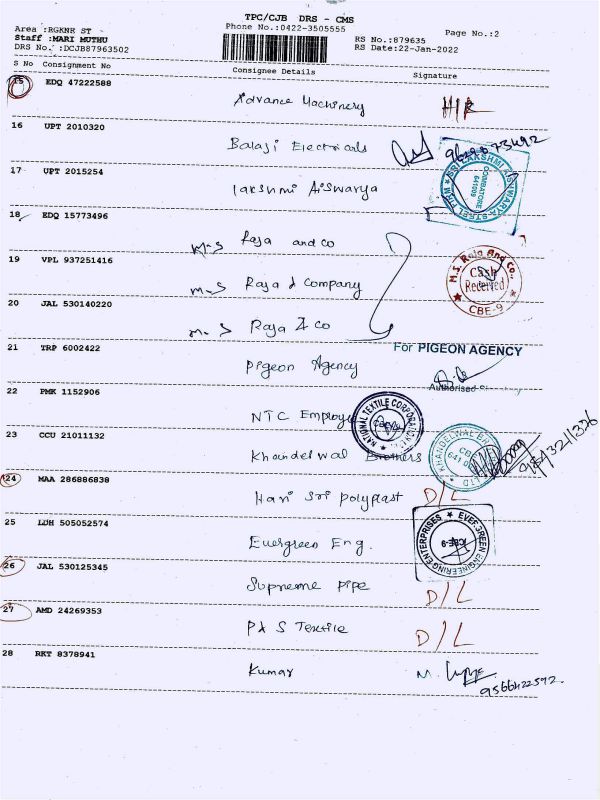 TPC/CJB DRS - CMS
Area :RGKNR ST
Phone No.:0422-3505555
Page No.:2
Staff :MARI MUTHU
RS No.:879635
DRS No. :DCJB87963502
RS Date:22-Jan-2022
S No Consignment No Consignee Details Signature
15 EDQ 47222588
Advance Machinery
16 UPT 2010320
Balaji Electricals
17 UPT 2015254
SRI LAKSHMI AISWARYA STEEL
COIMBATORE
641009
Lakshmi Aiswarya
18 EDQ 15773496
M-S Raja and co
19 VPL 937251416
M.S. Raja And Co.,
Cash Received
CBE-9
M-S Raja & Company
20 JAL 530140220
M-S Raja & co
21 TRP 6002422
For PIGEON AGENCY
Pigeon Agency
Authorised
22 PMK 1152906
NATIONAL TEXTILE CORPORATION
NTC Employe
23 CCU 21011132
KHANDELWAL
CBE
Khandelwal Brothers
24 MAA 286886838
Hari Sri Polyplast D/L
25 LDH 505052574
EVERGREEN ENGINEERING ENTERPRISES
CBE-9
Evergreen Eng.
26 JAL 530125345
Supreme pipe D/L
27 AMD 24269353
P & S Textile D/L
28 RKT 8378941
Kumar M.
9566422592.